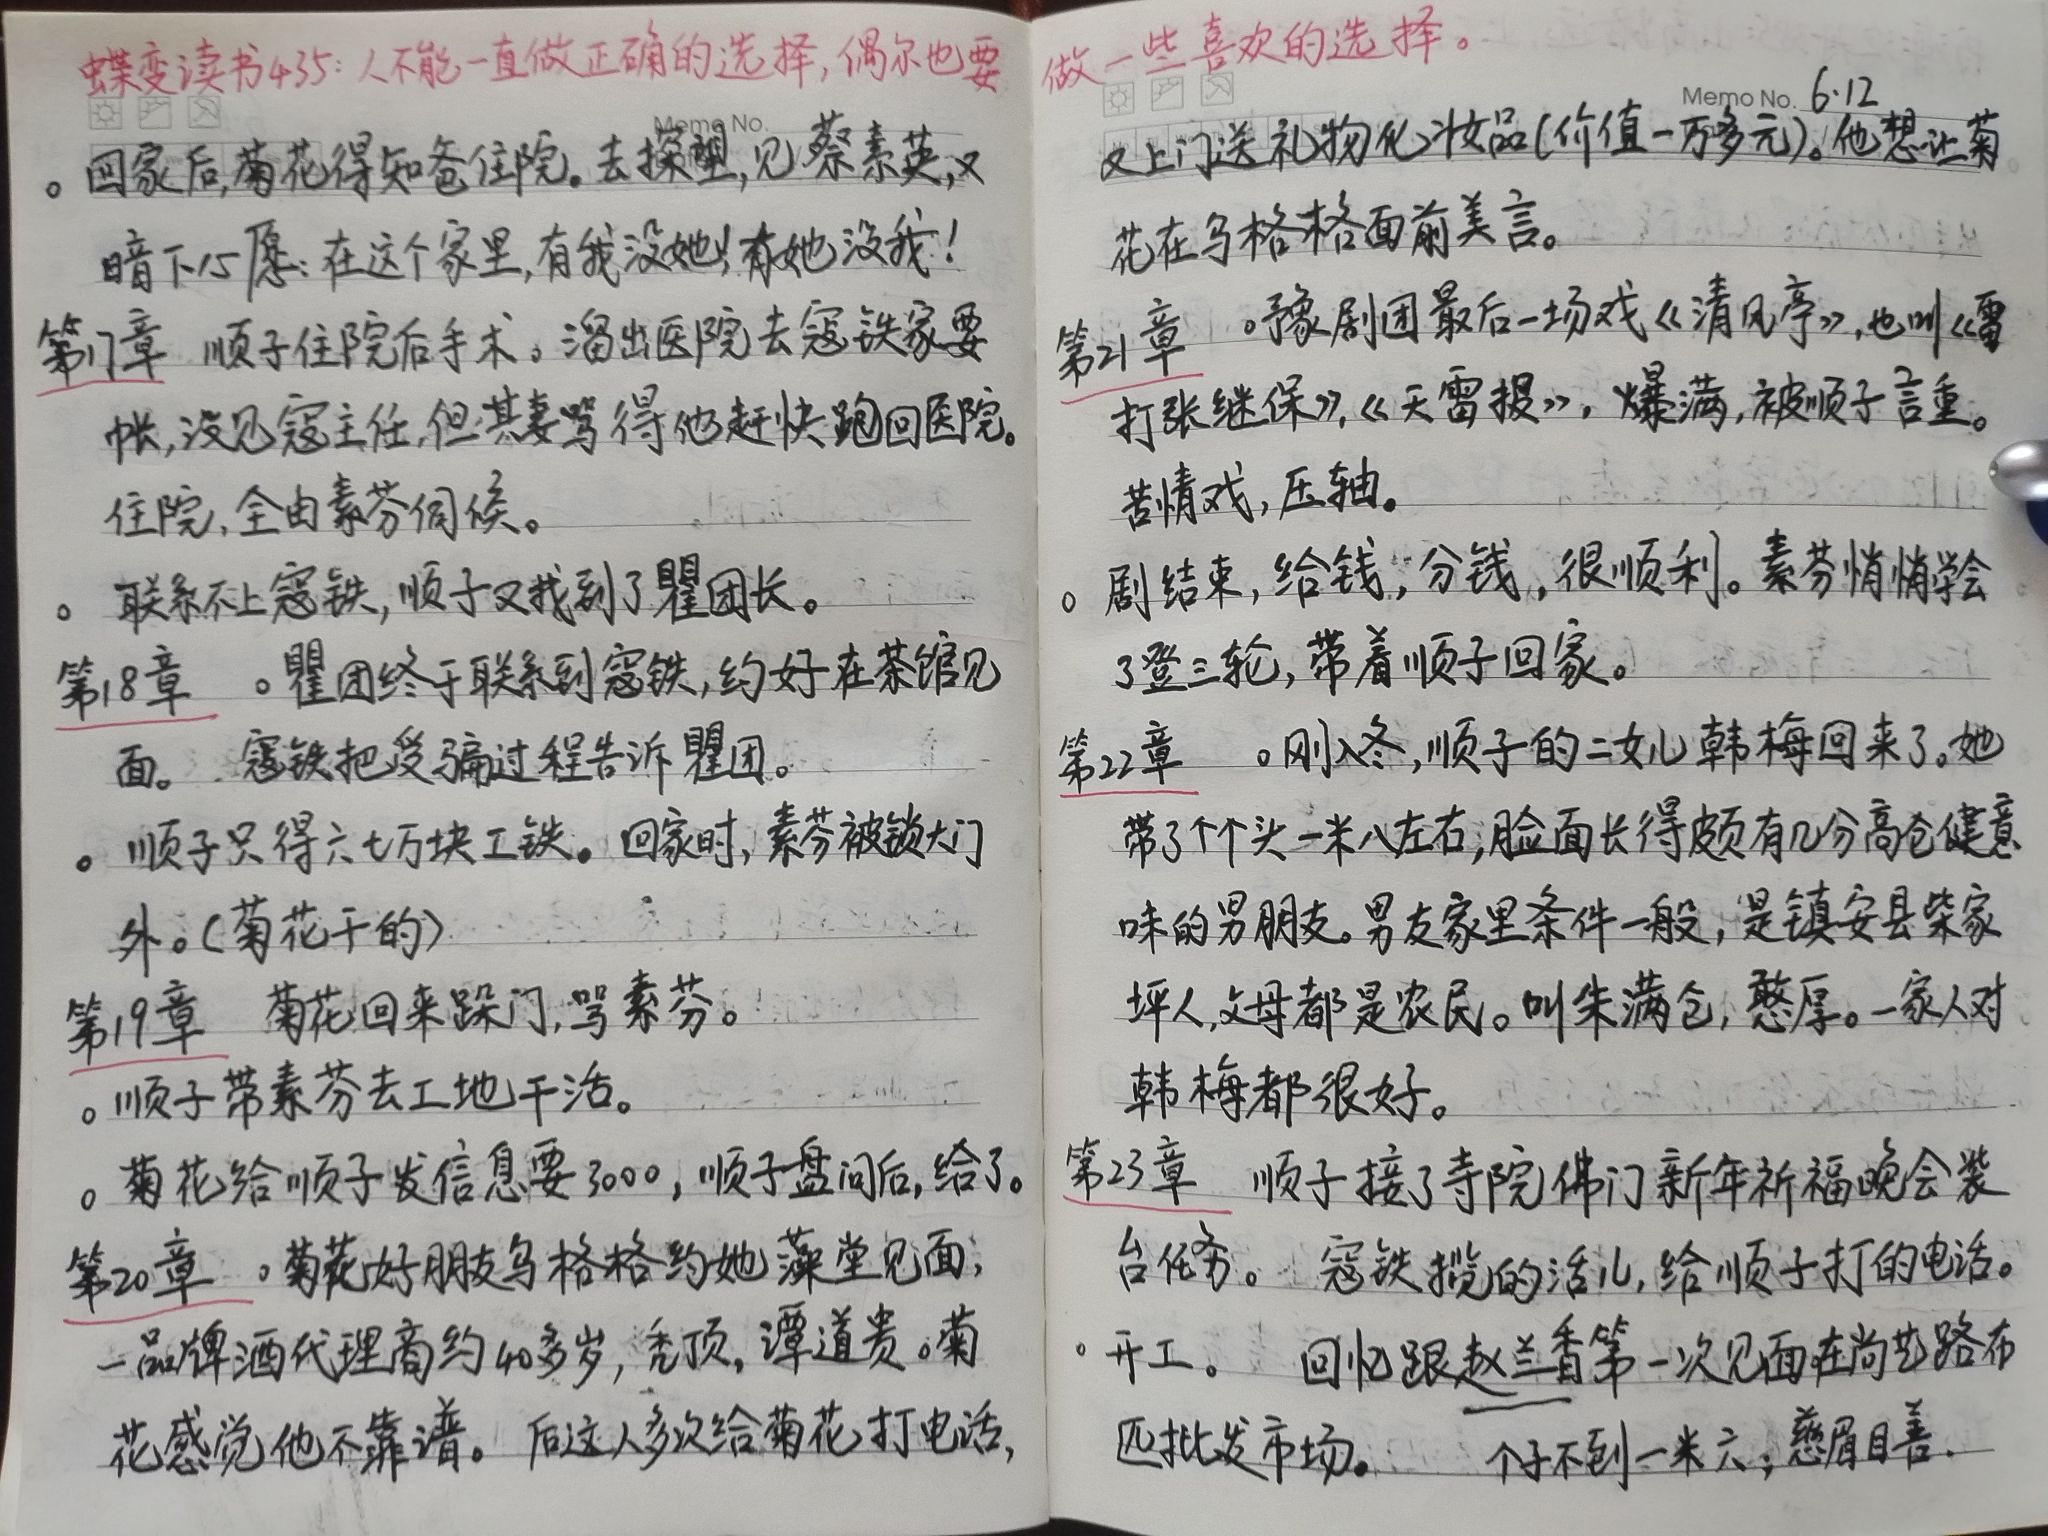 蝶变读书435:人不能一直做正确的选择,偶尔也要做一些喜欢的选择。
Memo No.
。回家后,菊花得知爸住院。去探望,见蔡素英,又
暗下心愿:在这个家里,有我没她!有她没我!
第17章 顺子住院后手术。溜出医院去寇铁家要
帐,没见寇主任,但其妻骂得他赶快跑回医院。
住院,全由素芬伺候。
。联系不上寇铁,顺子又找到了瞿团长。
第18章 。瞿团终于联系到寇铁,约好在茶馆见
面。 寇铁把受骗过程告诉瞿团。
。顺子只得六七万块工铁。回家时,素芬被锁大门
外。(菊花干的)
第19章 菊花回来跺门,骂素芬。
。顺子带素芬去工地干活。
。菊花给顺子发信息要3000,顺子盘问后,给了。
第20章 。菊花好朋友乌格格约她藻堂见面,
一品牌酒代理商约40多岁,秃顶,谭道贵。菊
花感觉他不靠谱。 后这人多次给菊花打电话,
Memo No. 6.12
又上门送礼物化妆品(价值一万多元)。他想让菊
花在乌格格面前美言。
第21章 。豫剧团最后一场戏《清风亭》,也叫《雷
打张继保》,《天雷报》,爆满,被顺子言重。
苦情戏,压轴。
。剧结束,给钱,分钱,很顺利。素芬悄悄学会
了登三轮,带着顺子回家。
第22章 。刚入冬,顺子的二女儿韩梅回来了。她
带了个个头一米八左右,脸面长得颇有几分高仓健意
味的男朋友。男友家里条件一般,是镇安县柴家
坪人,父母都是农民。叫朱满仓,憨厚。一家人对
韩梅都很好。
第23章 顺子接了寺院佛门新年祈福晚会装
台任务。 寇铁揽的活儿,给顺子打的电话。
。开工。 回忆跟赵兰香第一次见面在尚艺路布
匹批发市场。 个子不到一米六;慈眉目善.